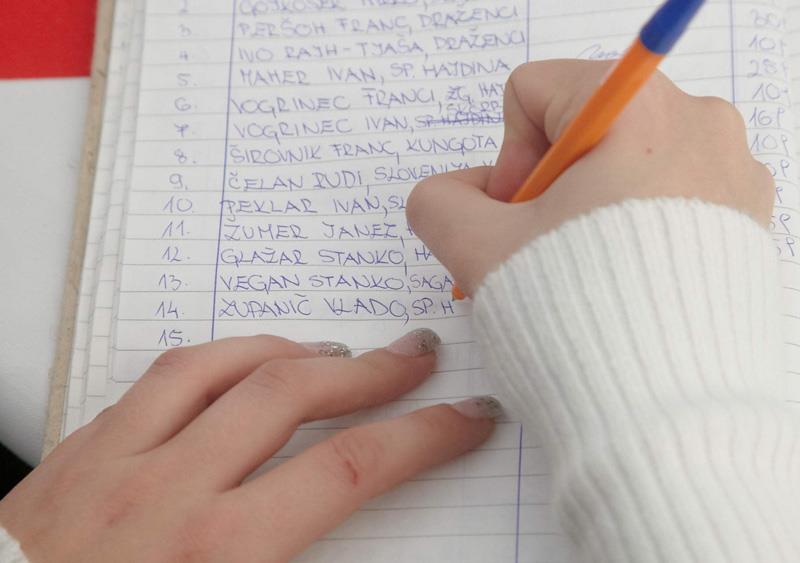 2.
3. PERŠOH FRANC, DRAŽENCI 30P
4. IVO RAJH-TJAŠA, DRAŽENCI 10P
5. MAHER IVAN, SP. HAJDINA 28P
6. VOGRINEC FRANCI, ZG. HAJ 10
7. VOGRINEC IVAN, 16P
8. ŠIROVNIK FRANC, KUNGOTA 10P
9. ČELAN RUDI, SLOVENIJA V
10. PEKLAR IVAN, SL
11. ŽUMER JANEZ,
12. GLAŽAR STANKO, HA
13. VEGAN STANKO, SAGA
14. ZUPANIČ VLADO, SP. H
15.